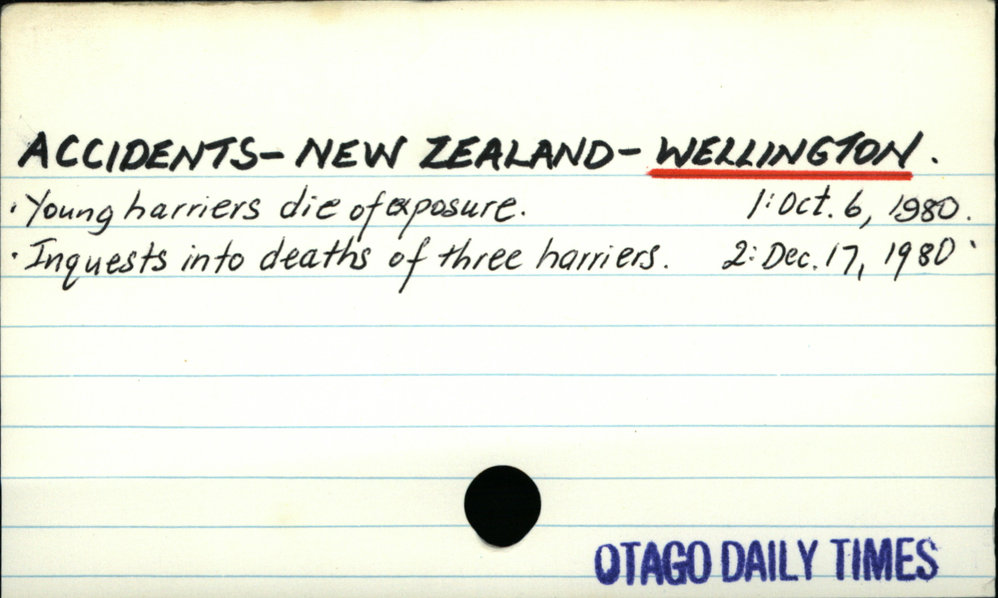 ACCIDENTS-NEW ZEALAND-WELLINGTON.
·Young harriers die of exposure. 1: Oct. 6, 1980.
·Inquests into deaths of three harriers. 2: Dec. 17, 1980.
OTAGO DAILY TIMES